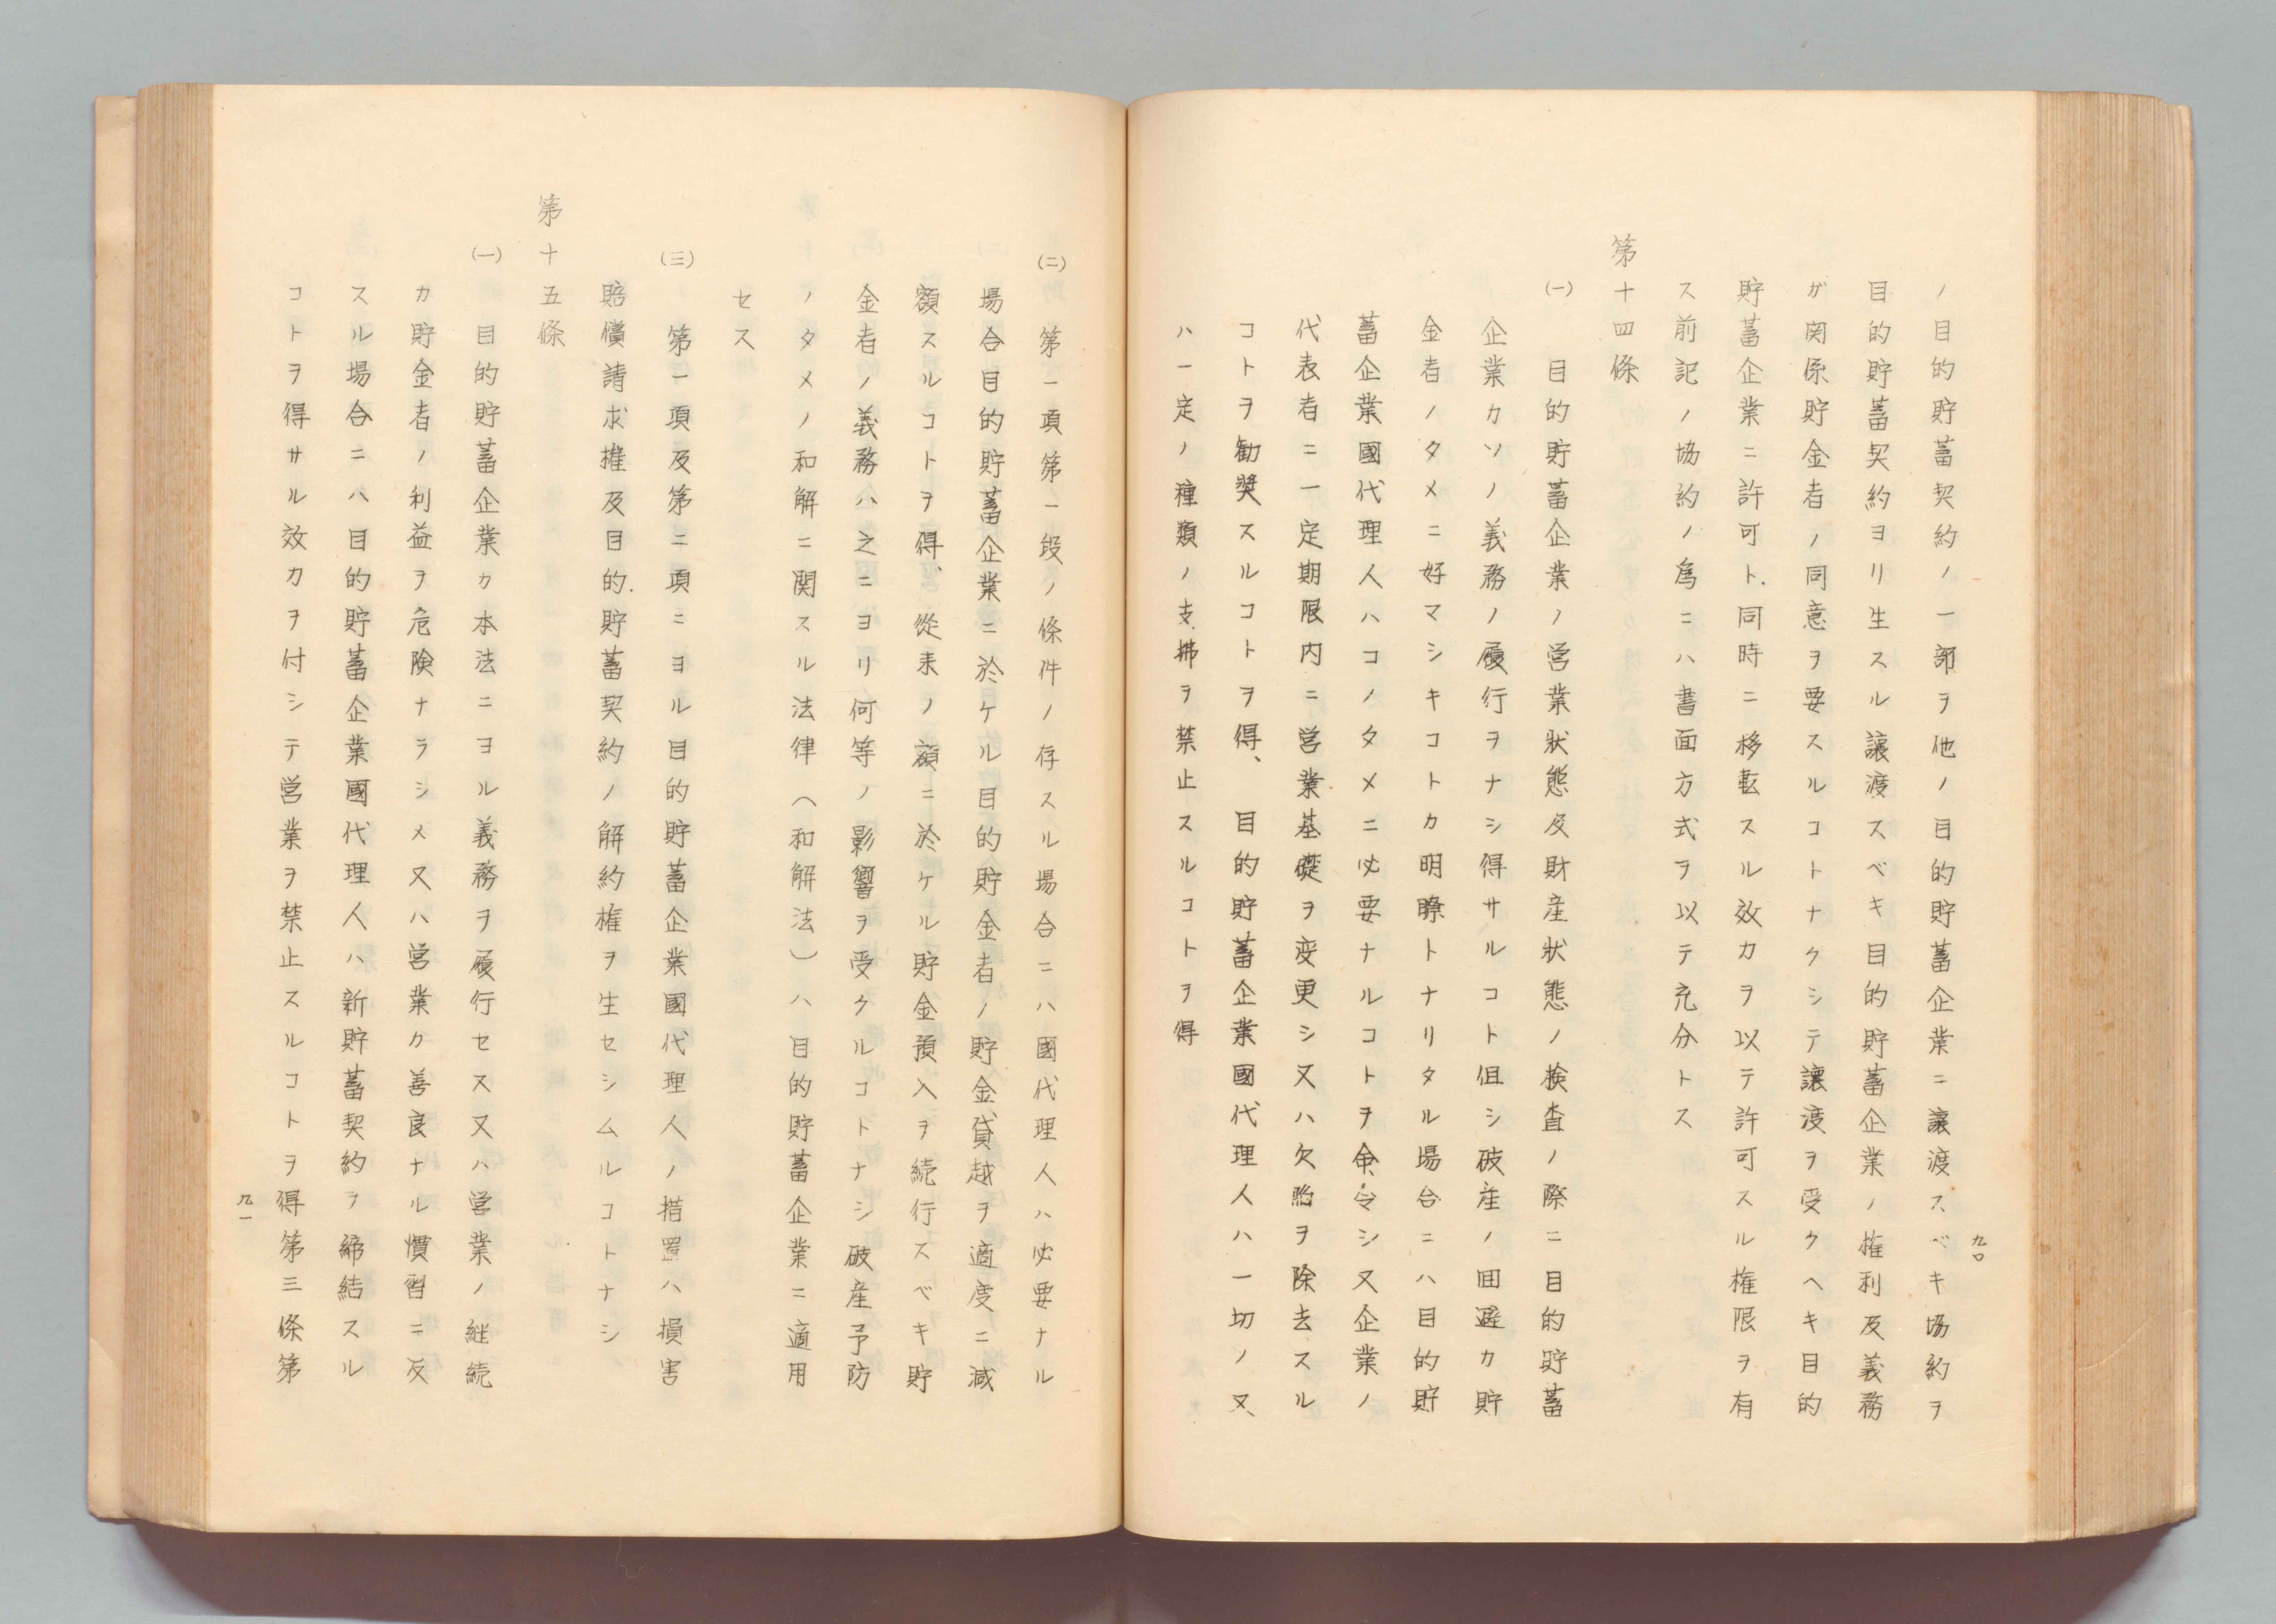 ノ目的貯蓄契約ノ一部ヲ他ノ目的貯蓄企業ニ讓渡スベキ協約ヲ
目的貯蓄契約ヨリ生スル讓渡スベキ目的貯蓄企業ノ権利及義務
ガ関係貯金者ノ同意ヲ要スルコトナクシテ讓渡ヲ受クヘキ目的
貯蓄企業ニ許可ト同時ニ移転スル效力ヲ以テ許可スル権限ヲ有
ス前記ノ協約ノ為ニハ書面方式ヲ以テ充分トス
第十四條
(一) 目的貯蓄企業ノ営業狀態及財産狀態ノ検査ノ際ニ目的貯蓄
企業カソノ義務ノ履行ヲナシ得サルコト但シ破産ノ囬避カ貯
金者ノタメニ好マシキコトカ明瞭トナリタル場合ニハ目的貯
蓄企業國代理人ハコノタメニ必要ナルコトヲ命令シ又企業ノ
代表者ニ一定期限内ニ営業基礎ヲ変更シ又ハ欠陥ヲ除去スル
コトヲ勧奨スルコトヲ得、目的貯蓄企業國代理人ハ一切ノ又、
ハ一定ノ種類ノ支拂ヲ禁止スルコトヲ得
九〇
(二) 第一項第一段ノ條件ノ存スル場合ニハ國代理人ハ必要ナル
場合目的貯蓄企業ニ於ケル目的貯金者ノ貯金貸越ヲ適度ニ減
額スルコトヲ得、從来ノ額ニ於ケル貯金預入ヲ続行スベキ貯
金者ノ義務ハ之ニヨリ何等ノ影響ヲ受クルコトナシ破産予防
ノタメノ和解ニ関スル法律(和解法)ハ目的貯蓄企業ニ適用
セス
(三) 第一項及第二項ニヨル目的貯蓄企業國代理人ノ措置ハ損害
賠償請求権及目的貯蓄契約ノ解約権ヲ生セシムルコトナシ
第十五條
(一) 目的貯蓄企業カ本法ニヨル義務ヲ履行セス又ハ営業ノ継続
カ貯金者ノ利益ヲ危険ナラシメ又ハ営業カ善良ナル慣習ニ反
スル場合ニハ目的貯蓄企業國代理人ハ新貯蓄契約ヲ締結スル
コトヲ得サル效力ヲ付シテ営業ヲ禁止スルコトヲ得第三條第
九一